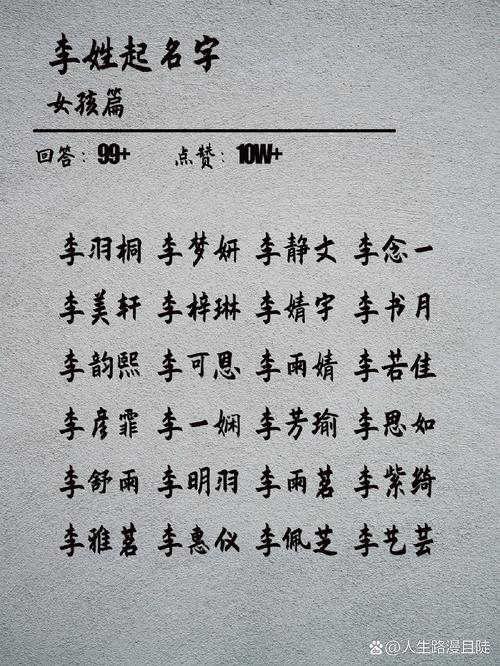 李姓起名字
女孩篇
回答：99+ 点赞：10W+
李羽桐 李梦妍 李静文 李念一
李美轩 李梓琳 李婧宇 李书月
李韵熙 李可恩 李雨婧 李若佳
李彦霏 李一娴 李芳瑜 李思如
李舒雨 李明羽 李雨茗 李紫绮
李雅茗 李惠仪 李佩芝 李艺芸
@人生路漫且陡